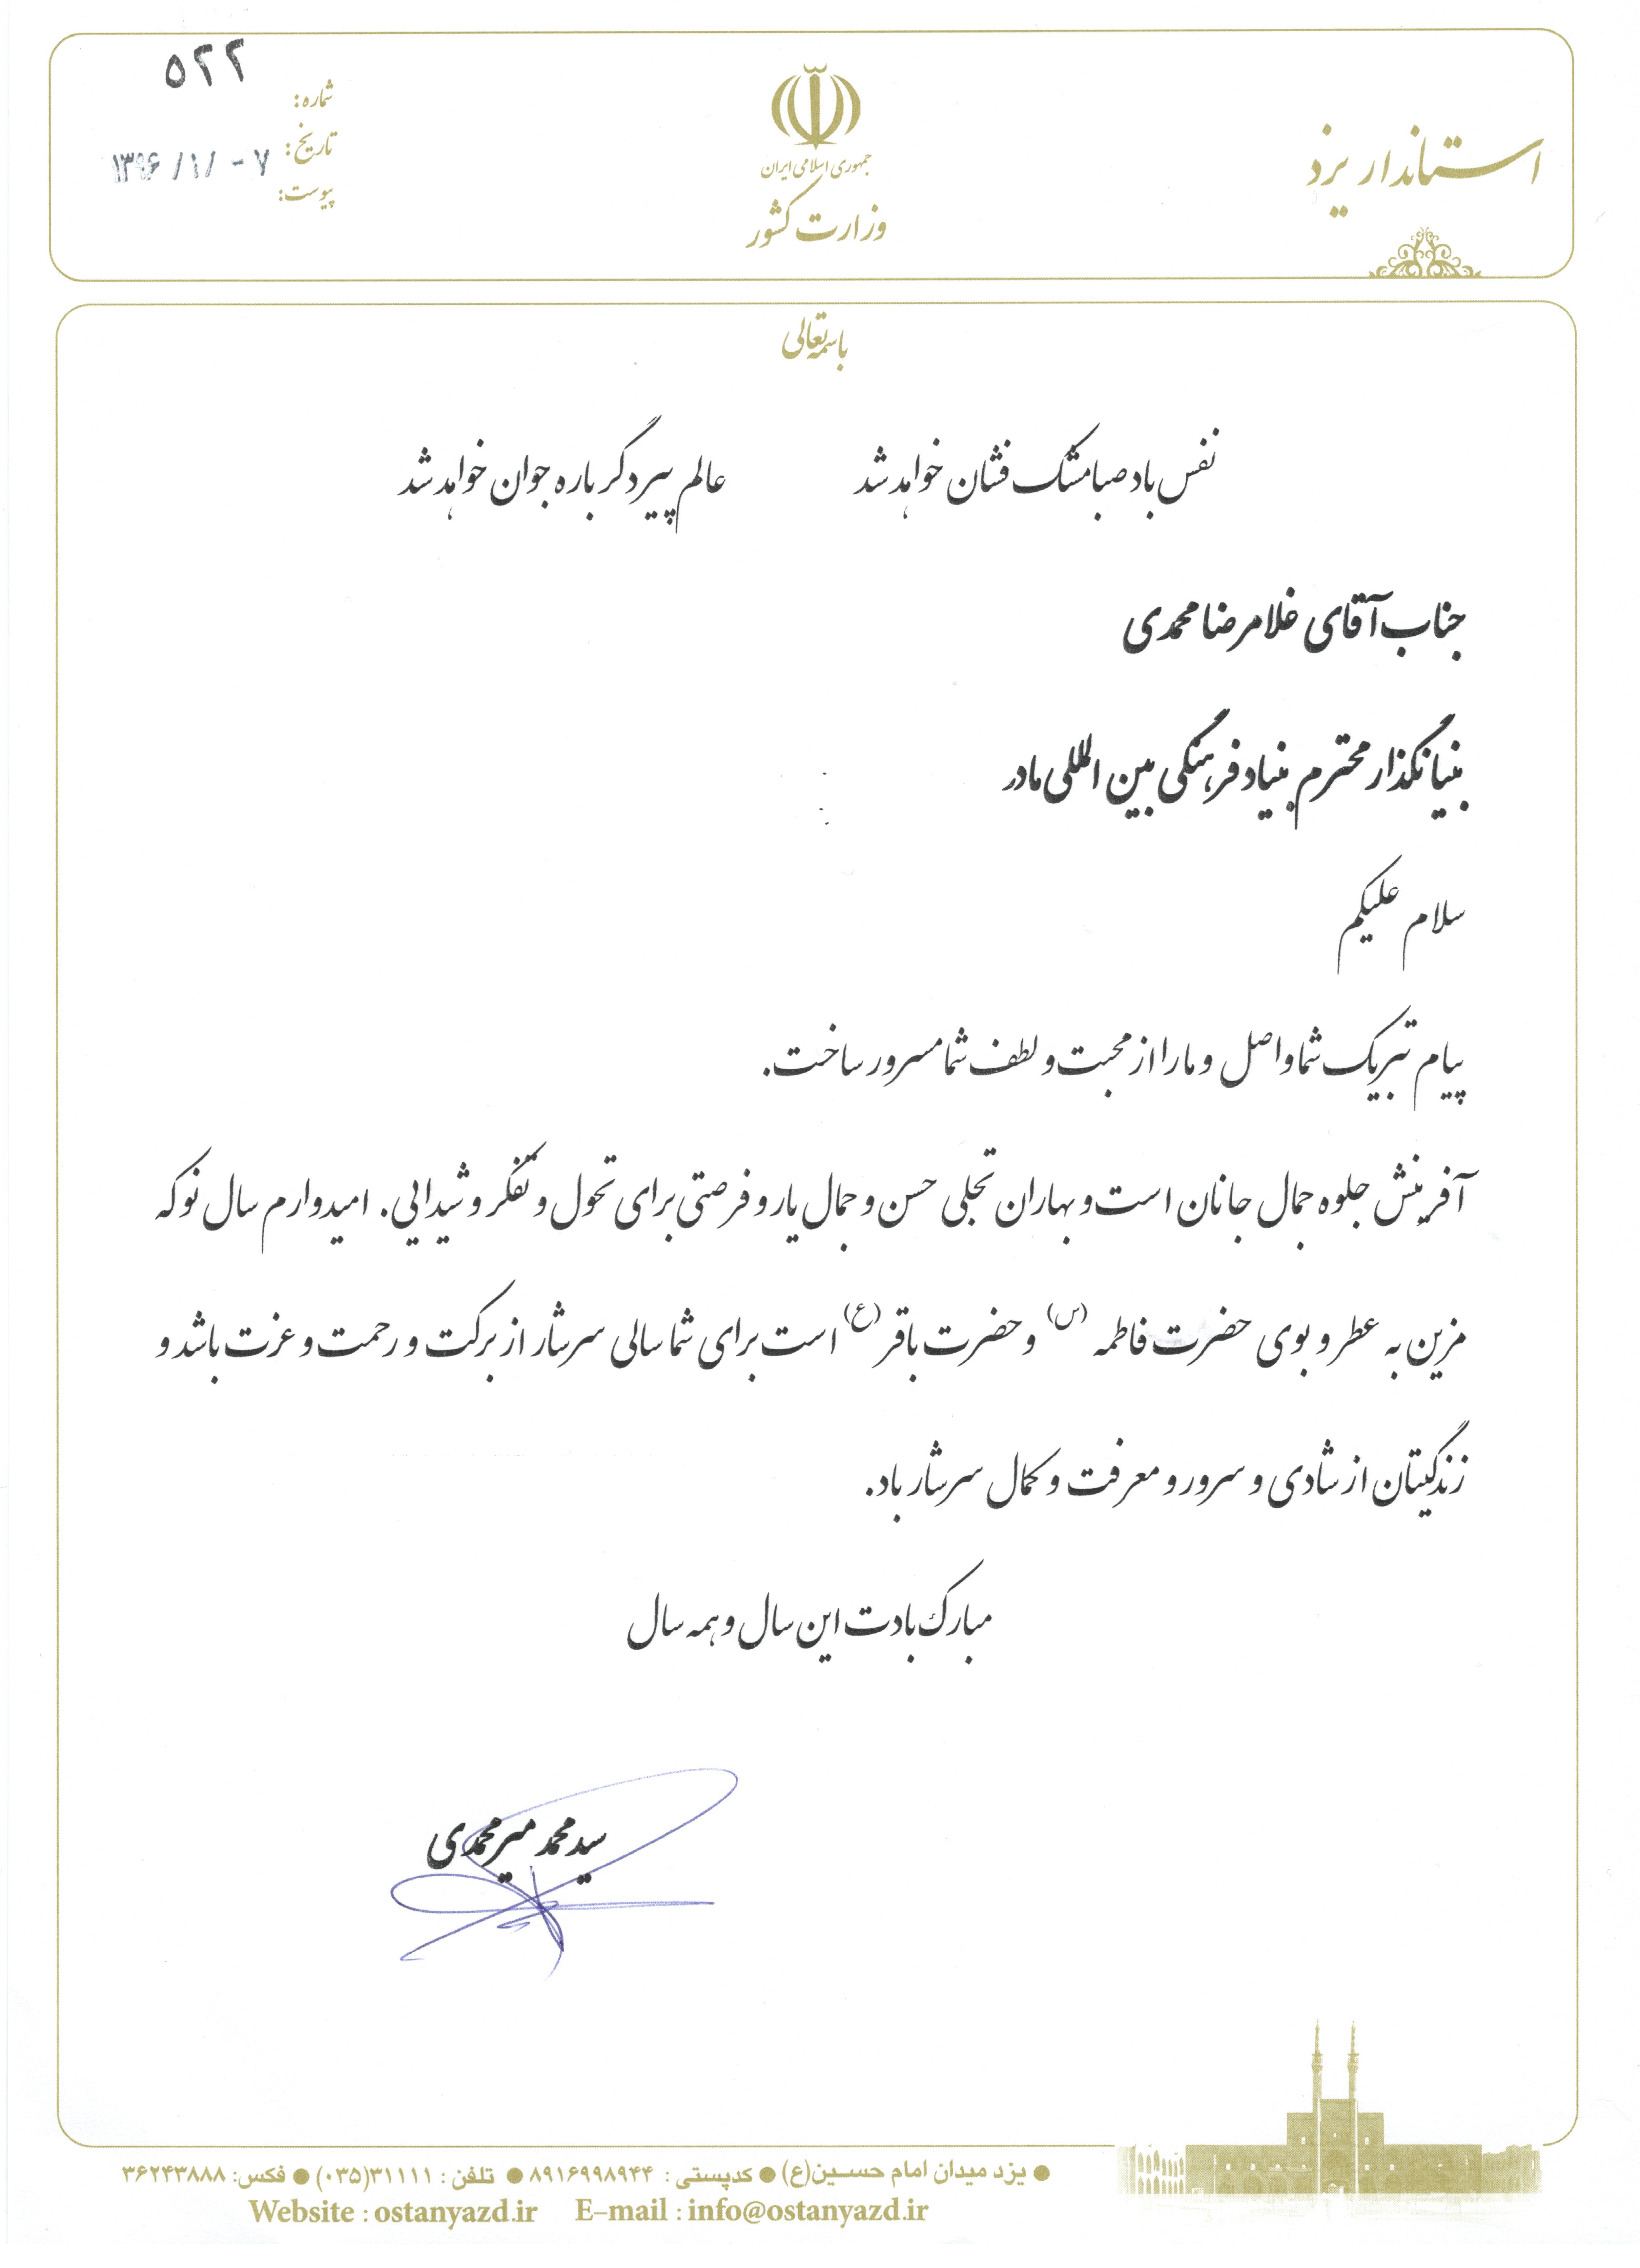 استاندار یزد
جمهوری اسلامی ایران
وزارت کشور
شماره: ۵۲۲
تاریخ: ۱۳۹۶/۱/۰۷
پیوست:
باسمه تعالی
نفس باد صبا مشک فشان خواهد شد عالم پیر دگر باره جوان خواهد شد
جناب آقای غلامرضا محمدی
بنیانگذار محترم بنیاد فرهنگی بین المللی مادر
سلام علیکم
پیام تبریک شما واصل و ما را از محبت و لطف شما مسرور ساخت.
آفرینش جلوه جمال جانان است و بهاران تجلی حسن و جمال یار و فرصتی برای تحول و تفکر و شیدایی. امیدوارم سال نو که
مزین به عطر و بوی حضرت فاطمه (س) و حضرت باقر (ع) است برای شما سالی سرشار از برکت و رحمت و عزت باشد و
زندگیتان از شادی و سرور و معرفت و کمال سرشار باد.
مبارک بادت این سال و همه سال
سید محمد میرمحمدی
● یزد میدان امام حسین(ع) ● کدپستی : ۸۹۱۶۹۹۸۹۴۴ ● تلفن : ۳۱۱۱۱(۰۳۵) ● فکس: ۳۶۲۴۳۸۸۸
Website : ostanyazd.ir E-mail : info@ostanyazd.ir